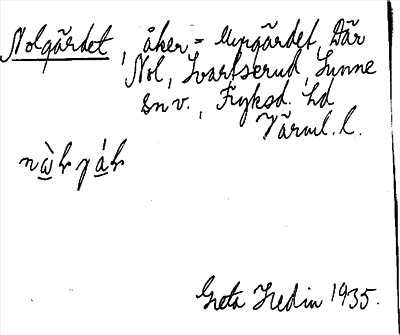 Nolgärdet, åker = Murgärdet, Där
Nol, Svartserud, Sunne
sn v., Fryksd. hd
Värml. l.
Greta Hedin 1935.